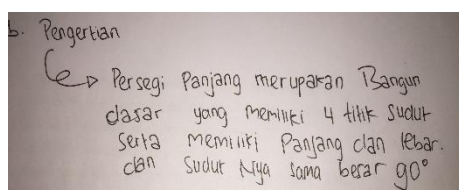 b. Pengertian
Persegi Panjang merupakan Bangun
dasar yang memiliki 4 titik sudut
serta memiliki Panjang dan lebar.
dan sudut Nya sama besar 90°